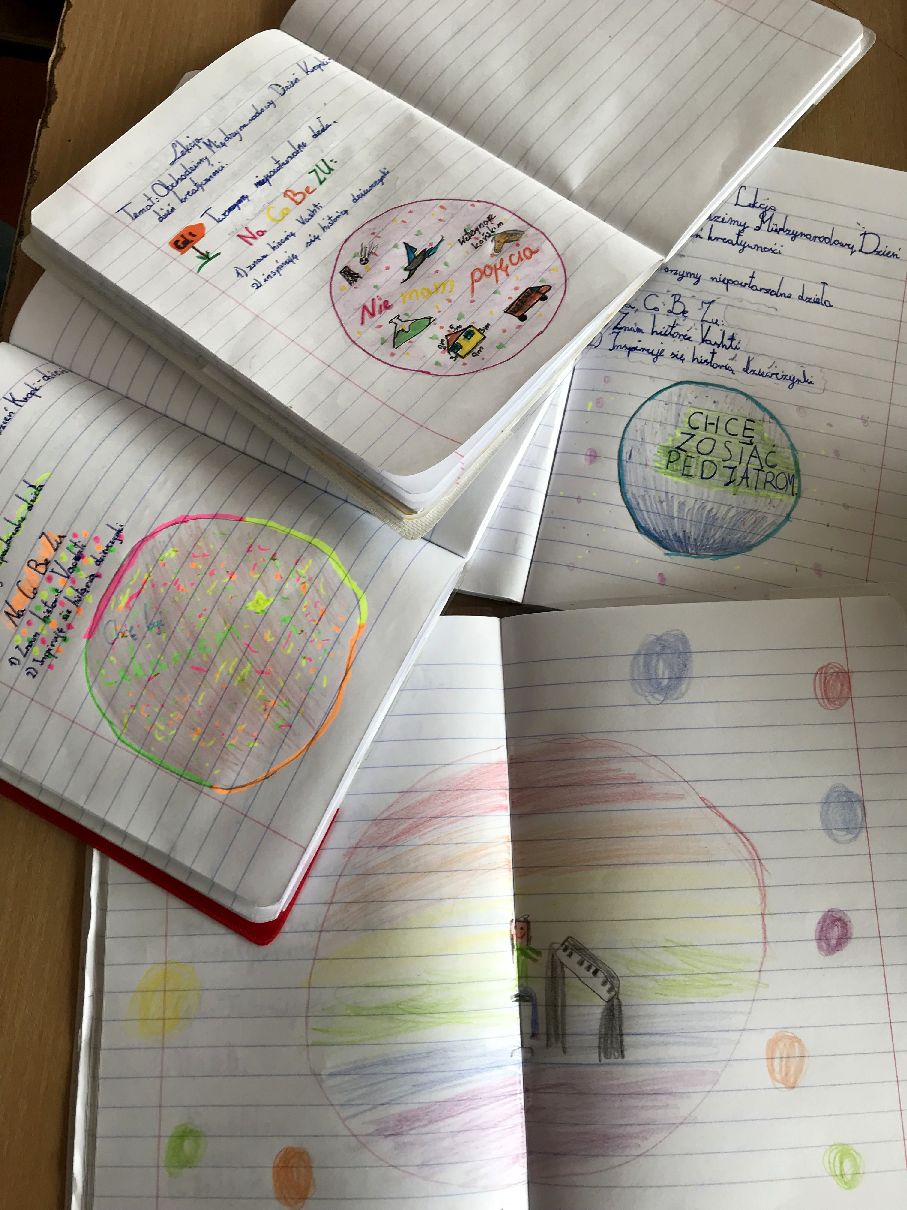 Lekcja
Temat: Obchodzimy Międzynarodowy Dzień Kropki
dzień kreatywności.
Cel:
Tworzymy niepowtarzalne dzieła.
Na Co Be ZU:
1) znam historię Vashti
2) inspiruję się historią dziewczynki
Nie mam pojęcia
Lekcja
Międzynarodowy Dzień
kreatywności
niepowtarzalne dzieła
Co Bę Zu:
Znam historię Vashti
Inspiruję się historią dziewczynki
CHCĘ
ZOSIAĆ
PEDIATROM
Dzień Kropki-dzień
Na Co Be Zu
1) Znam historię Vashti
2) Inspiruję się historią dziewczynki
Chcę być